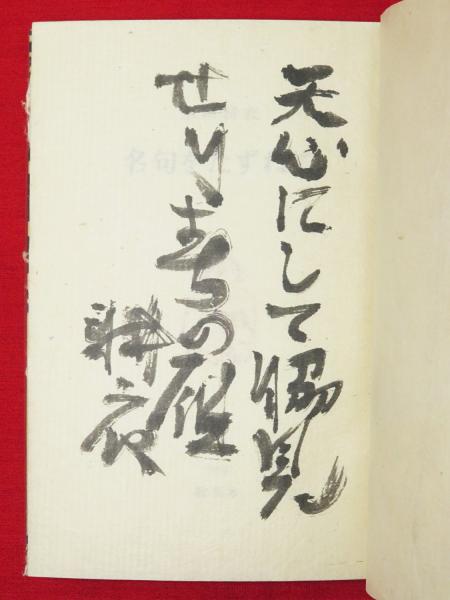 天心にして脇見
せり春の雁
耕衣